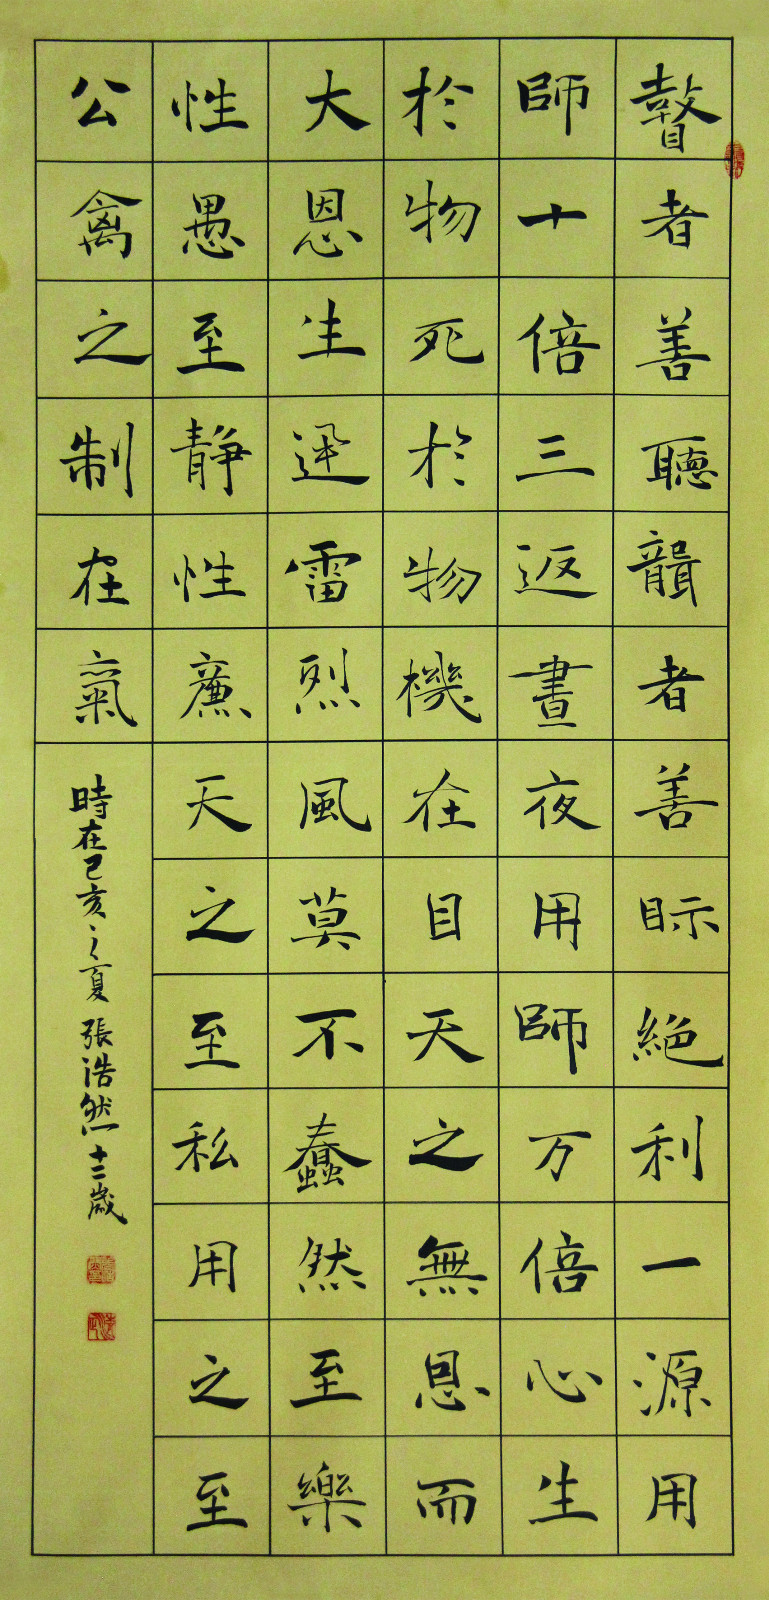 瞽者善聽聾者善眎絕利一源用
師十倍三返晝夜用師万倍心生
於物死於物機在目天之無恩而
大恩生迅雷烈風莫不蠢然至樂
性愚至靜性廉天之至私用之至
公禽之制在氣
時在己亥之夏張浩然十二歲